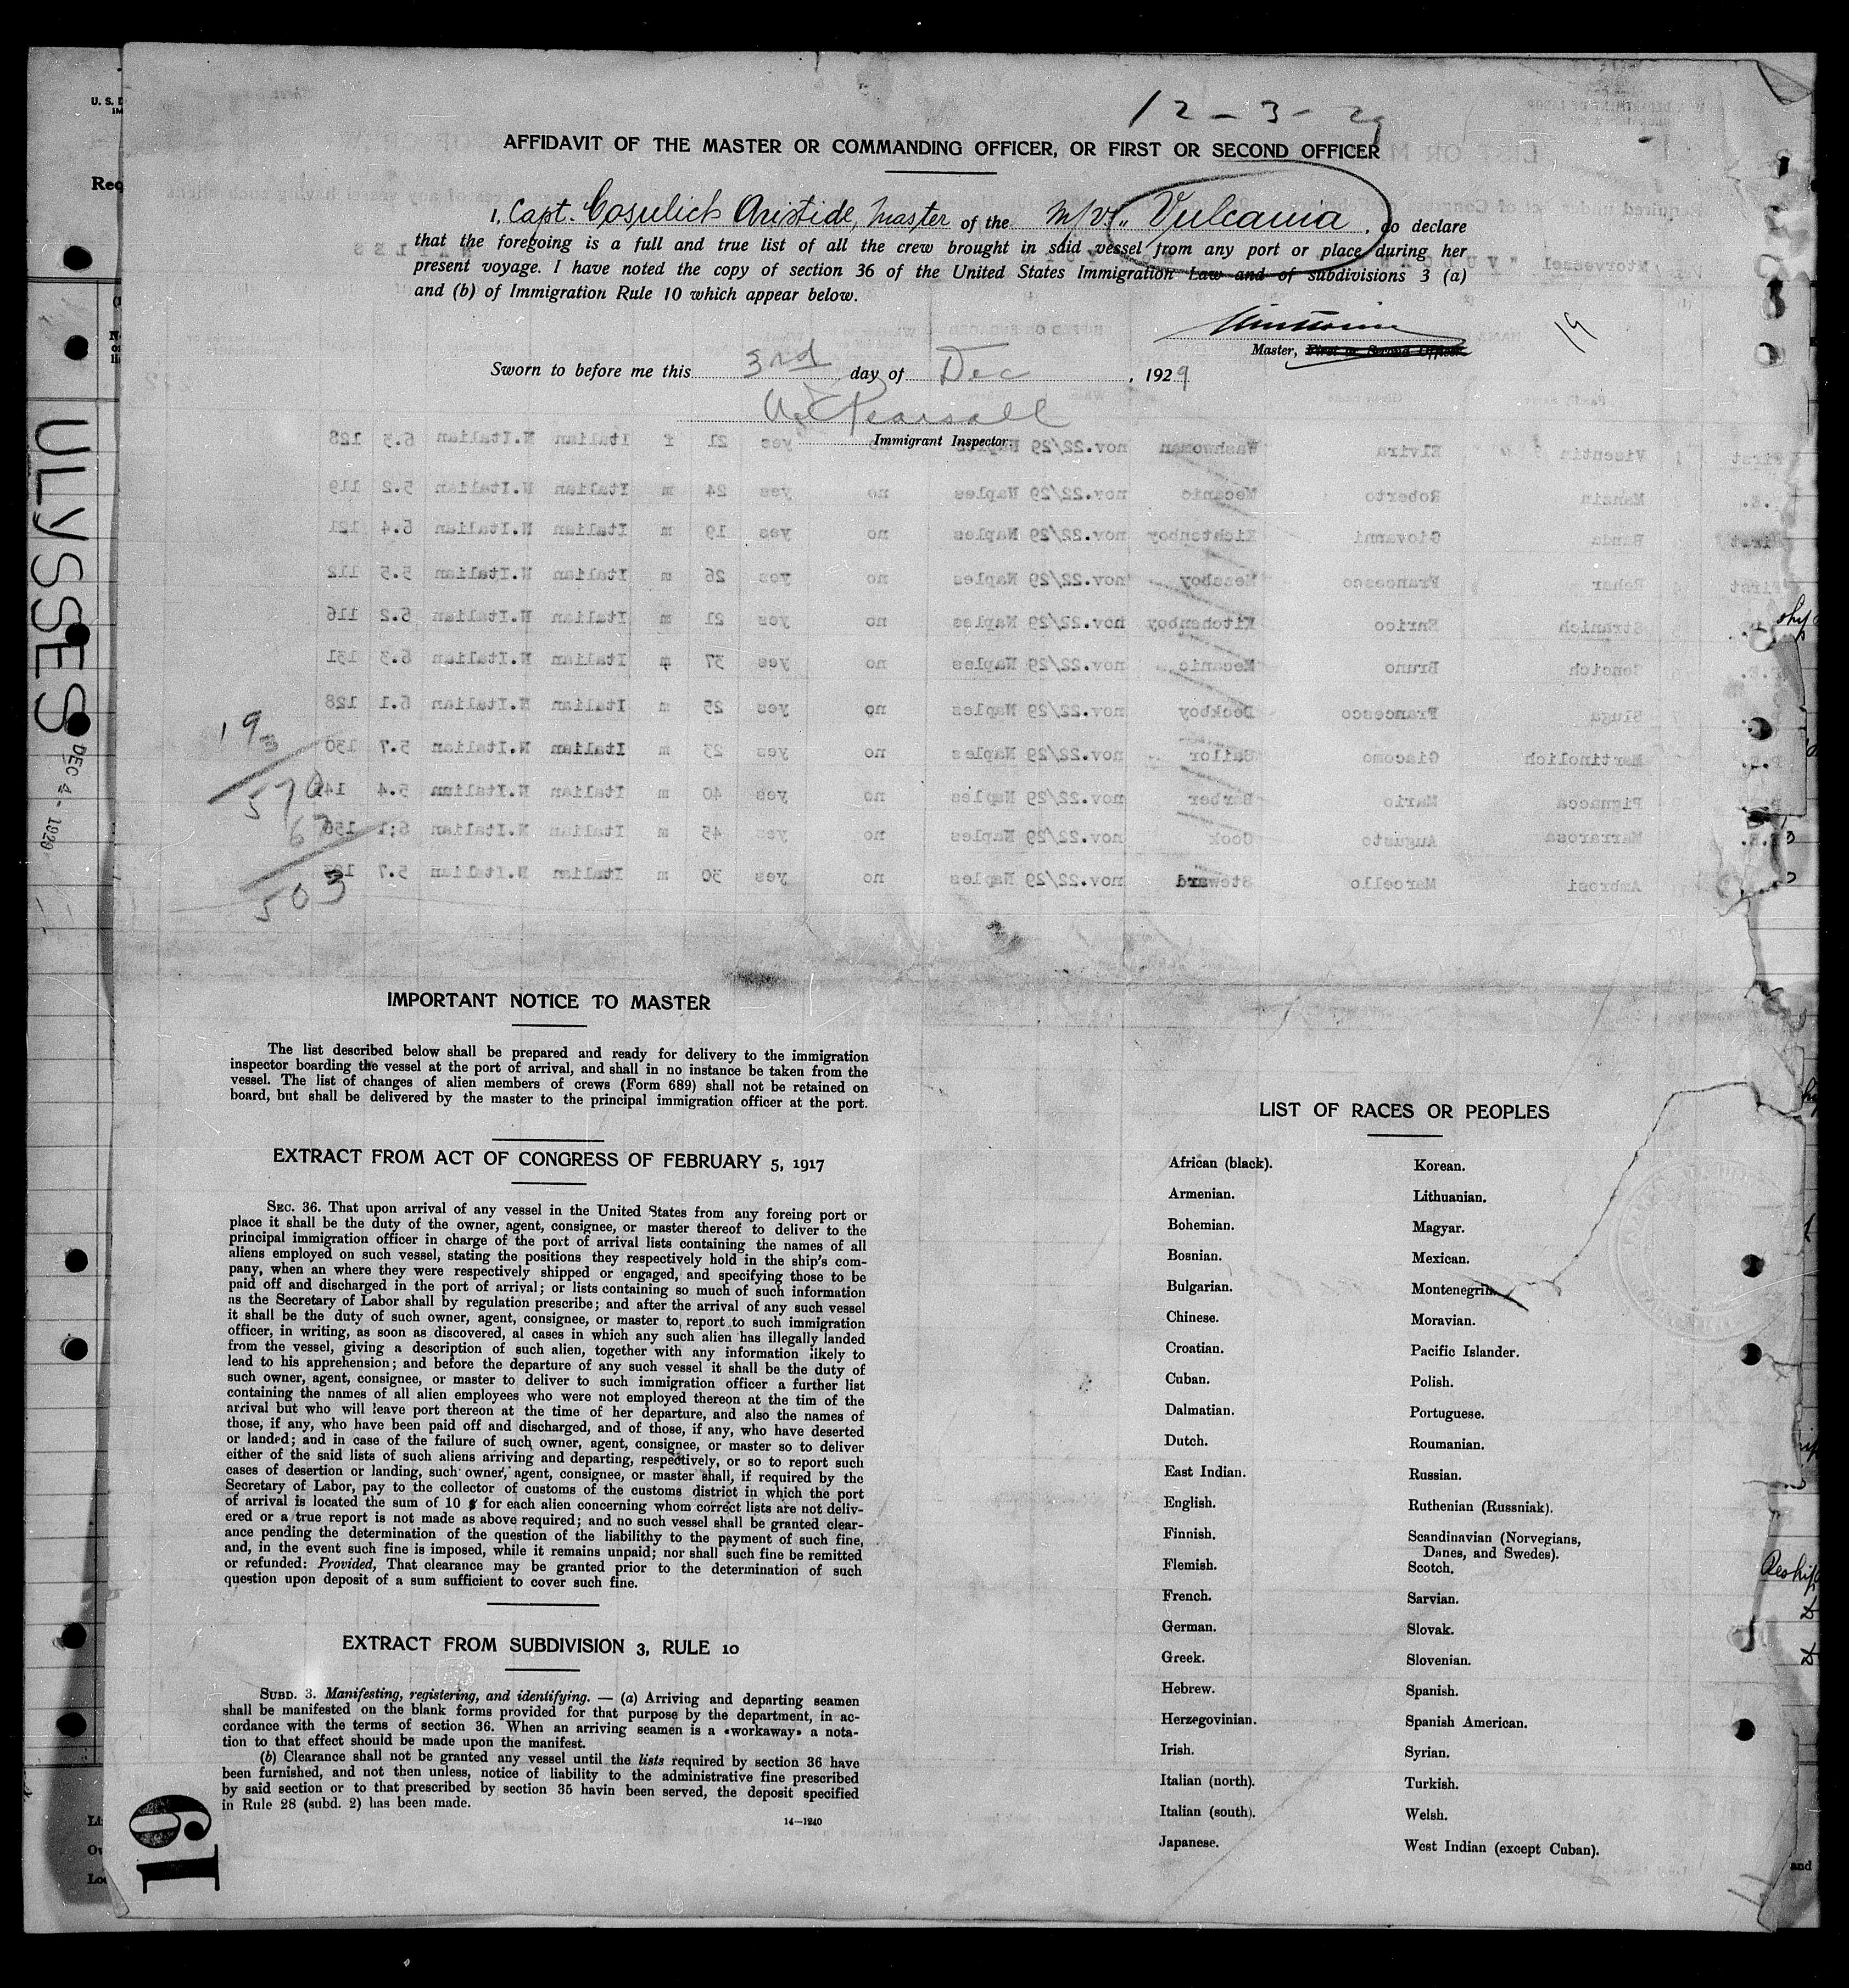 12-3-29
AFFIDAVIT OF THE MASTER OR COMMANDING OFFICER, OR FIRST OR SECOND OFFICER
I, Capt. Cosulich Aristide, Master of the M/V „ Vulcania , do declare
that the foregoing is a full and true list of all the crew brought in said vessel from any port or place during her
present voyage. I have noted the copy of section 36 of the United States Immigration Law and of subdivisions 3 (a)
and (b) of Immigration Rule 10 which appear below.
19
Master, First or Second Officer.
Sworn to before me this 3rd day of Dec , 1929
Pearsall
Immigrant Inspector.
First Visentin Elvira Washwoman nov.22/29 Naples no yes 21 f Italian N.Italian 5.3 128
Mansin Roberto Mecanic nov.22/29 Naples no yes 24 m Italian N.Italian 5.2 119
First Banda Giovanni Kichtenboy nov.22/29 Naples no yes 19 m Italian N.Italian 5.4 121
First Rehar Francesco Messboy nov.22/29 Naples no yes 26 m Italian N.Italian 5.5 112
Stranich Enrico Kitchenboy nov.22/29 Naples no yes 21 m Italian N.Italian 5.2 116
Bruno Mecanic nov.22/29 Naples no yes 37 m Italian N.Italian 6.3 131
Sluga Francesco Deckboy nov.22/29 Naples no yes 25 m Italian N.Italian 6.1 128
Martinolich Giacomo Sailor nov.22/29 Naples no yes 23 m Italian N.Italian 5.7 130
Pignacca Mario Barber nov.22/29 Naples no yes 40 m Italian N.Italian 5.4
Marrarosa Augusto Cook nov.22/29 Naples no yes 45 m Italian N.Italian 6;1
Ambrosi Marcello Steward nov.22/29 Naples no yes 30 m Italian N.Italian 5.7
19
3
570
67
503
ULYSSES
DEC 4 - 1929
IMPORTANT NOTICE TO MASTER
The list described below shall be prepared and ready for delivery to the immigration
inspector boarding the vessel at the port of arrival, and shall in no instance be taken from the
vessel. The list of changes of alien members of crews (Form 689) shall not be retained on
board, but shall be delivered by the master to the principal immigration officer at the port.
EXTRACT FROM ACT OF CONGRESS OF FEBRUARY 5, 1917
SEC. 36. That upon arrival of any vessel in the United States from any foreing port or
place it shall be the duty of the owner, agent, consignee, or master thereof to deliver to the
principal immigration officer in charge of the port of arrival lists containing the names of all
aliens employed on such vessel, stating the positions they respectively hold in the ship's com-
pany, when an where they were respectively shipped or engaged, and specifying those to be
paid off and discharged in the port of arrival; or lists containing so much of such information
as the Secretary of Labor shall by regulation prescribe; and after the arrival of any such vessel
it shall be the duty of such owner, agent, consignee, or master to report to such immigration
officer, in writing, as soon as discovered, al cases in which any such alien has illegally landed
from the vessel, giving a description of such alien, together with any information likely to
lead to his apprehension; and before the departure of any such vessel it shall be the duty of
such owner, agent, consignee, or master to deliver to such immigration officer a further list
containing the names of all alien employees who were not employed thereon at the tim of the
arrival but who will leave port thereon at the time of her departure, and also the names of
those, if any, who have been paid off and discharged, and of those, if any, who have deserted
or landed; and in case of the failure of such owner, agent, consignee, or master so to deliver
either of the said lists of such aliens arriving and departing, respectively, or so to report such
cases of desertion or landing, such owner, agent, consignee, or master shall, if required by the
Secretary of Labor, pay to the collector of customs of the customs district in which the port
of arrival is located the sum of 10 $ for each alien concerning whom correct lists are not deliv-
ered or a true report is not made as above required; and no such vessel shall be granted clear-
ance pending the determination of the question of the liabilithy to the payment of such fine,
and, in the event such fine is imposed, while it remains unpaid; nor shall such fine be remitted
or refunded: Provided, That clearance may be granted prior to the determination of such
question upon deposit of a sum sufficient to cover such fine.
EXTRACT FROM SUBDIVISION 3, RULE 10
SUBD. 3. Manifesting, registering, and identifying. — (a) Arriving and departing seamen
shall be manifested on the blank forms provided for that purpose by the department, in ac-
cordance with the terms of section 36. When an arriving seamen is a «workaway» a nota-
tion to that effect should be made upon the manifest.
(b) Clearance shall not be granted any vessel until the lists required by section 36 have
been furnished, and not then unless, notice of liability to the administrative fine prescribed
by said section or to that prescribed by section 35 havin been served, the deposit specified
in Rule 28 (subd. 2) has been made.
14—1240
19
LIST OF RACES OR PEOPLES
African (black). Korean.
Armenian. Lithuanian.
Bohemian. Magyar.
Bosnian. Mexican.
Bulgarian. Montenegrin.
Chinese. Moravian.
Croatian. Pacific Islander.
Cuban. Polish.
Dalmatian. Portuguese.
Dutch. Roumanian.
East Indian. Russian.
English. Ruthenian (Russniak).
Finnish. Scandinavian (Norvegians,
Danes, and Swedes).
Flemish. Scotch.
French. Sarvian.
German. Slovak.
Greek. Slovenian.
Hebrew. Spanish.
Herzegovinian. Spanish American.
Irish. Syrian.
Italian (north). Turkish.
Italian (south). Welsh.
Japanese. West Indian (except Cuban).